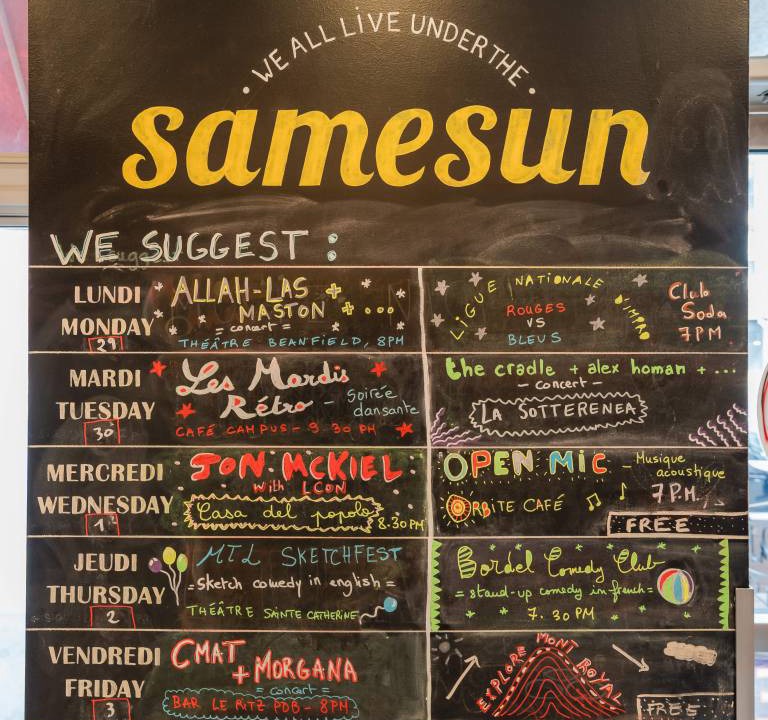 WE ALL LIVE UNDER THE
samesun
WE SUGGEST :
LUNDI
MONDAY
29
ALLAH-LAS +
MASTON + ...
= concert =
THÉÂTRE BEANFIELD, 8PM
LIGUE NATIONALE D'IMPRO
ROUGES
VS
BLEUS
Club
Soda
7PM
MARDI
TUESDAY
30
Les Mardis
Rétro - Soirée
dansante
CAFÉ CAMPUS - 9.30 PM
the cradle + alex homan + ...
- concert -
LA SOTTERENEA
MERCREDI
WEDNESDAY
1
JON MCKIEL
with LCON
Casa del popolo
8.30PM
OPEN MIC - Musique
acoustique
ORBITE CAFÉ
7P.M.
FREE
JEUDI
THURSDAY
2
MTL SKETCHFEST
= Sketch comedy in english =
THÉÂTRE SAINTE CATHERINE
Bordel Comedy Club
= stand-up comedy in french =
7.30 PM
VENDREDI
FRIDAY
3
CMAT
+ MORGANA
= concert =
BAR LE RITZ PDB - 8PM
EXPLORE MONT ROYAL